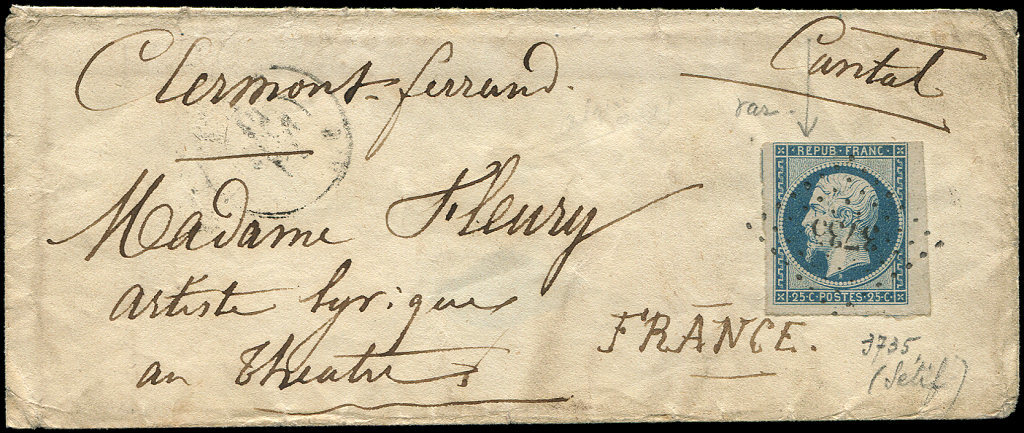 Cantal
Clermont-ferrand.
var.
REPUB·FRANC
Madame Fleury
3733
25·C·POSTES·25·C
artiste lyrique
FRANCE.
au Théatre
3735
(Sétif)